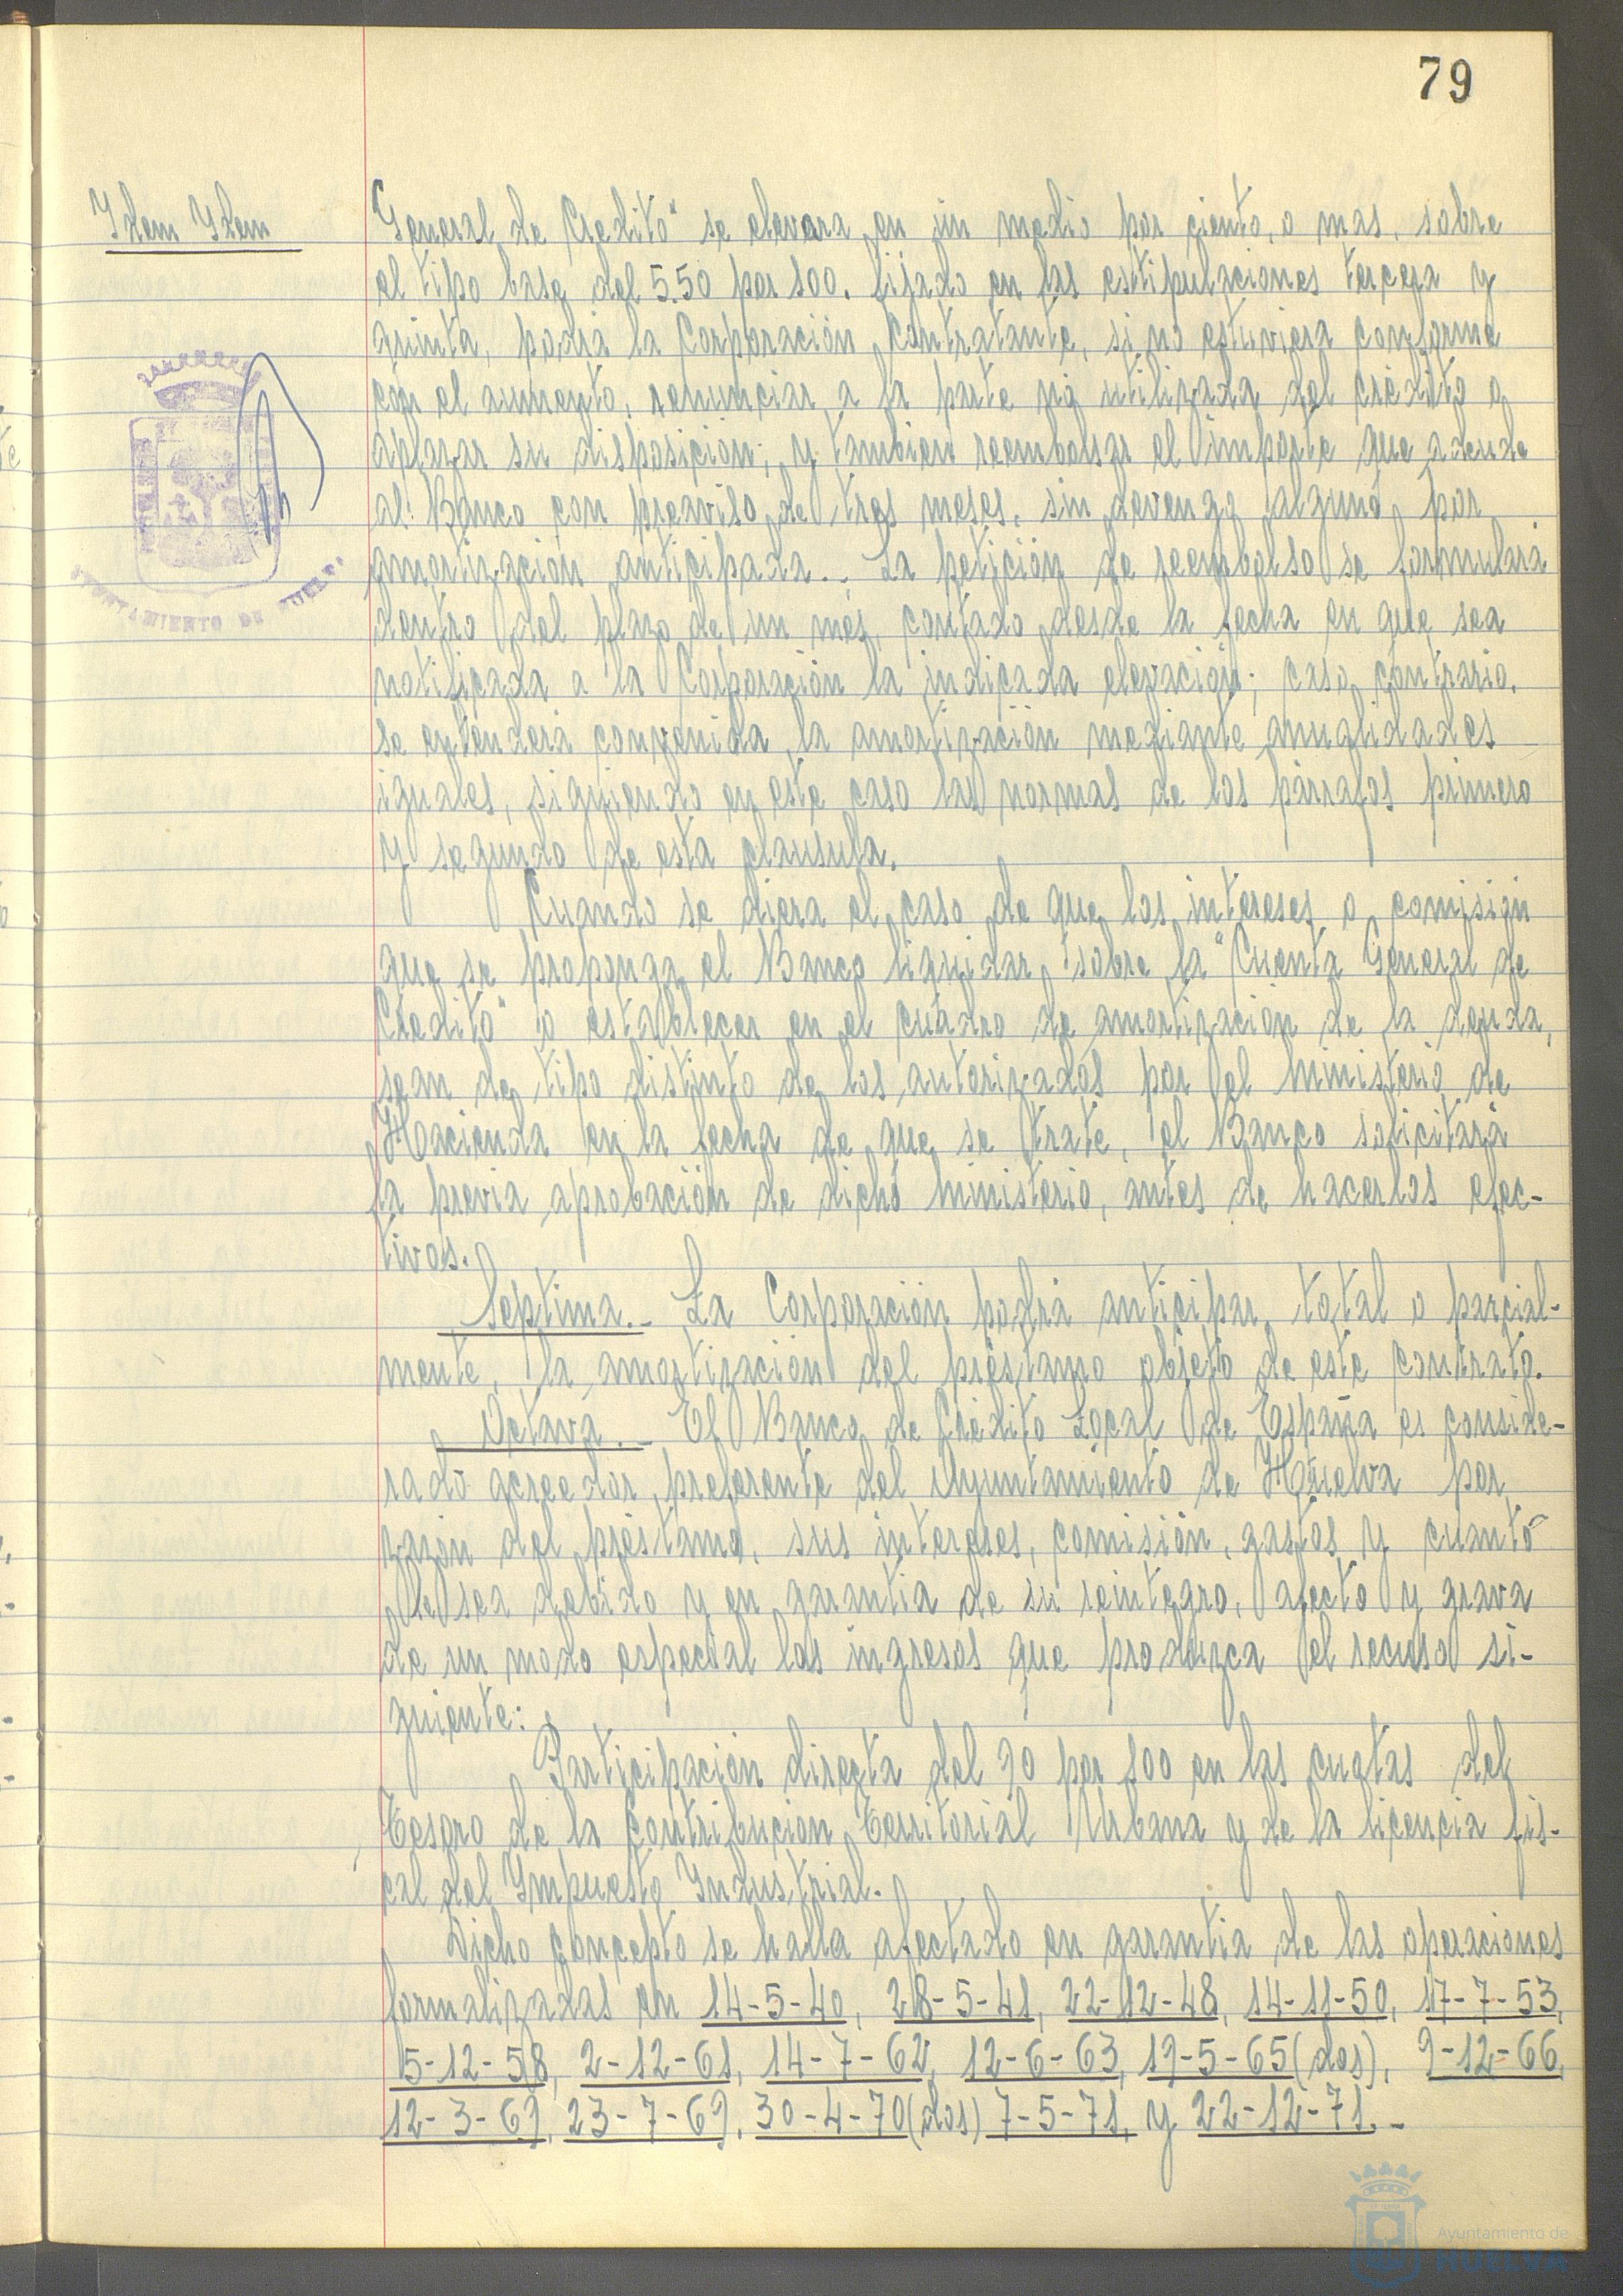 79
Idem Idem
General de Crédito" se elevara en un medio por ciento, o mas, sobre
el tipo base del 5.50 por 100, fijado en las estipulaciones tercera y
quinta, podrá la Corporación Contratante, si no estuviera conforme
con el aumento, renunciar a la parte no utilizada del crédito o
aplazar su disposición; y tambien reembolsar el importe que adeude
al Banco con preaviso de tres meses, sin devengo alguno por
amortización anticipada.- La petición de reembolso se formulará
dentro del plazo de un mes, contado desde la fecha en que sea
notificada a la Corporación la indicada elevación; caso contrario,
se entenderá convenida la amortización mediante anualidades
iguales, siguiendo en este caso las normas de los párrafos primero
y segundo de esta clausula.
Cuando se diera el caso de que los intereses o comisión
que se proponga el Banco liquidar sobre la "Cuenta General de
Crédito" o establecer en el cuadro de amortización de la deuda,
sean de tipo distinto de los autorizados por el Ministerio de
Hacienda en la fecha de que se trate, el Banco solicitará
la previa aprobación de dicho Ministerio, antes de hacerlos efec-
tivos.
Septima.- La Corporación podrá anticipar total o parcial-
mente, la amortización del préstamo objeto de este contrato.
Octava.- El Banco de Crédito Local de España es conside-
rado acreedor preferente del Ayuntamiento de Huelva por
razón del préstamo, sus intereses, comisión, gastos y cuanto
le sea debido y en garantia de su reintegro, afecto y grava
de un modo especial los ingresos que produzca el recurso si-
guiente:
Participación directa del 90 por 100 en las cuotas del
Tesoro de la Contribucion Territorial Urbana y de la licencia fis-
cal del Impuesto Industrial.
Dicho concepto se halla afectado en garantia de las operaciones
formalizadas en 14-5-40, 28-5-41, 22-12-48, 14-11-50, 17-7-53,
5-12-58, 2-12-61, 14-7-62, 12-6-63, 19-5-65(dos), 9-12-66,
12-3-69, 23-7-69, 30-4-70(dos) 7-5-71, y 22-12-71.-
AYUNTAMIENTO DE HUELVA
Ayuntamiento de
HUELVA